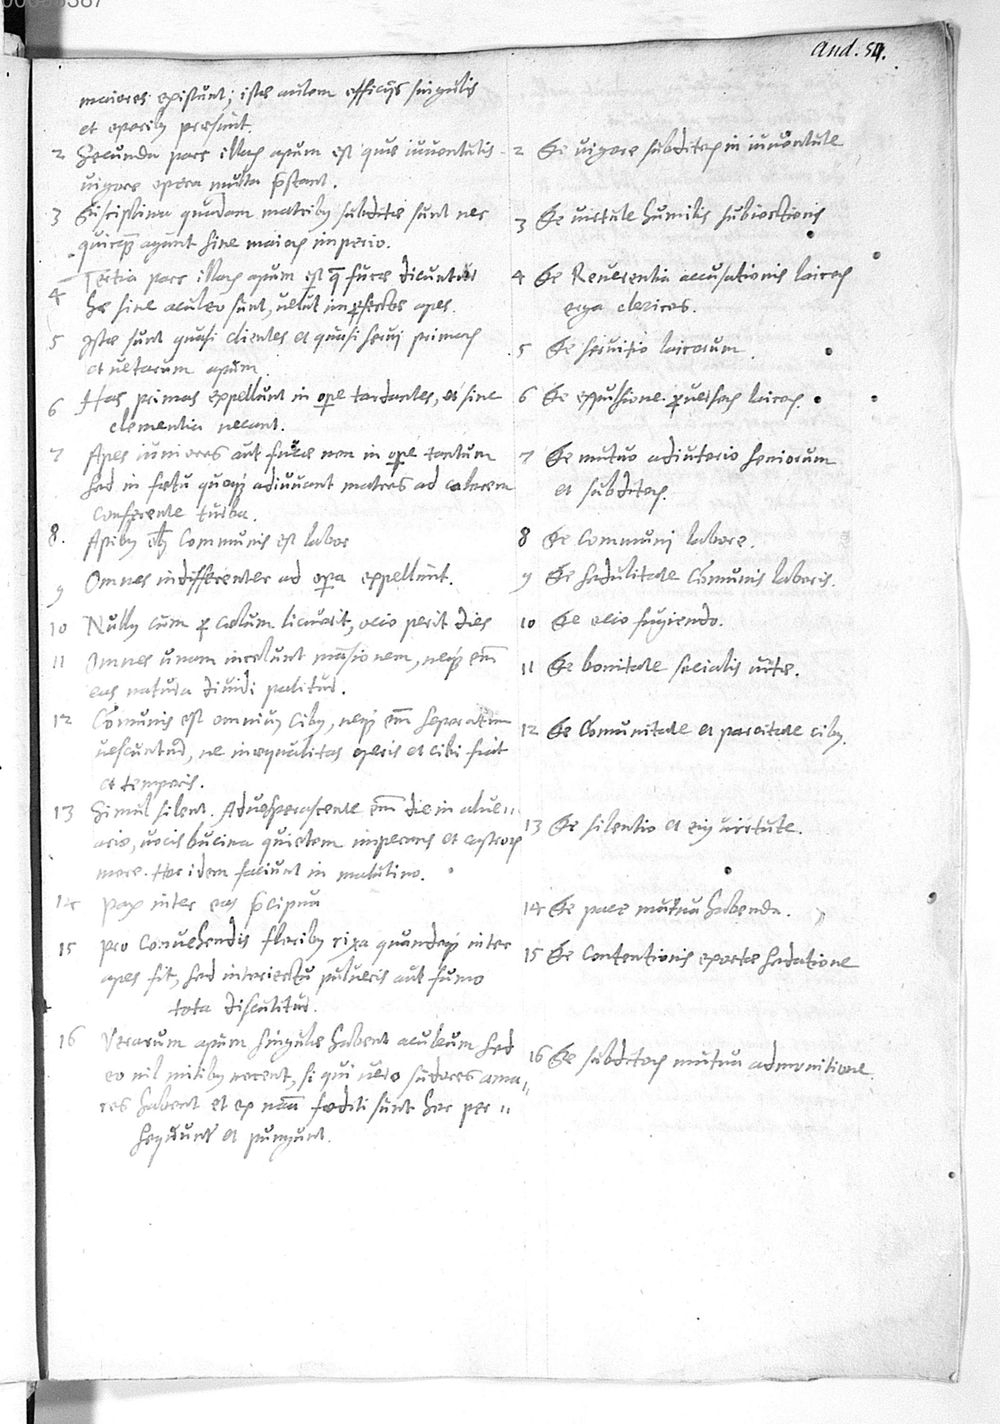 And. 54.
maiores existunt; istæ autem officijs singulis
et operibꝰ præsunt.
2 Secunda pars illarꝭ apum est quæ iuuentutis
uigore opera multa p̃stant.
3 Disciplina quadam matribꝰ subditæ sunt nec
quicq̃ agunt sine maiorꝭ imperio.
4 Tertia pars illarꝭ apum est q̃ fuci dicuntur
hæ sine aculeo sunt, uelut imperfectæ apes.
5 Istæ sunt quasi clientes et quasi serui primarꝭ
et uetarum apum.
6 Has primas expellunt in oꝑe tardantes, et sine
clementia necant.
7 Apes iuniores aut fuci non in oꝑe tantum
sed in fœtu quoqꝫ adiuuant matres ad calorem
conferente turba.
8. Apibꝰ Communis est labor
9 Omnes indifferenter ad oꝑa expellunt.
10 Nullꝰ cum ꝑ cœlum licuerit, ocio perit dies
11 Omnes unam incolunt mãsionem, neqꝫ em̃
eas natura diuidi patitur.
12 Cõmunis est omniũ cibꝰ, neqꝫ em̃ separatim
uescuntur, ne inæqualitas operis et cibi fiat
et temporis.
13 Simul silent. Aduesperascente em̃ die in alue〃
ario, uocis bucina quietem imperans et castrorꝭ
more. Hoc idem faciunt in matutino.
14 pax inter eas p̃cipua
15 pro Conuehendis floribꝰ rixa quandoqꝫ inter
apes fit, sed interiectu pulueris aut fumo
tota discutitur.
16 Verarum apum singulæ habent aculeum sed
eo nil mitibꝰ nocent, si qui uero sudores ama〃
res habent et ex nat̃a fœditi sunt hos per〃
sequunt̃ et pungunt.
2 De uigore subditorꝭ in iuuentute
3 De uirtute humilis subiectionis
4 De Reuerentia accusationis laicorꝭ
erga clericos.
5 De seruitio laicorum.
6 De expulsione ꝑuersorꝭ laicorꝭ.
7 De mutuo adiutorio seniorum
et subditorꝭ.
8 De Communi labore.
9 De sedulitate Cõmunis laboris.
10 De ocio fugiendo.
11 De bonitate socialis uitæ.
12 De Comunitate et parcitate cibꝰ.
13 De silentio et eiꝰ uirtute.
14 De pace mutua habenda.
15 De Contentionis exortæ sedatione
16 De subditorꝭ mutua admonitione.